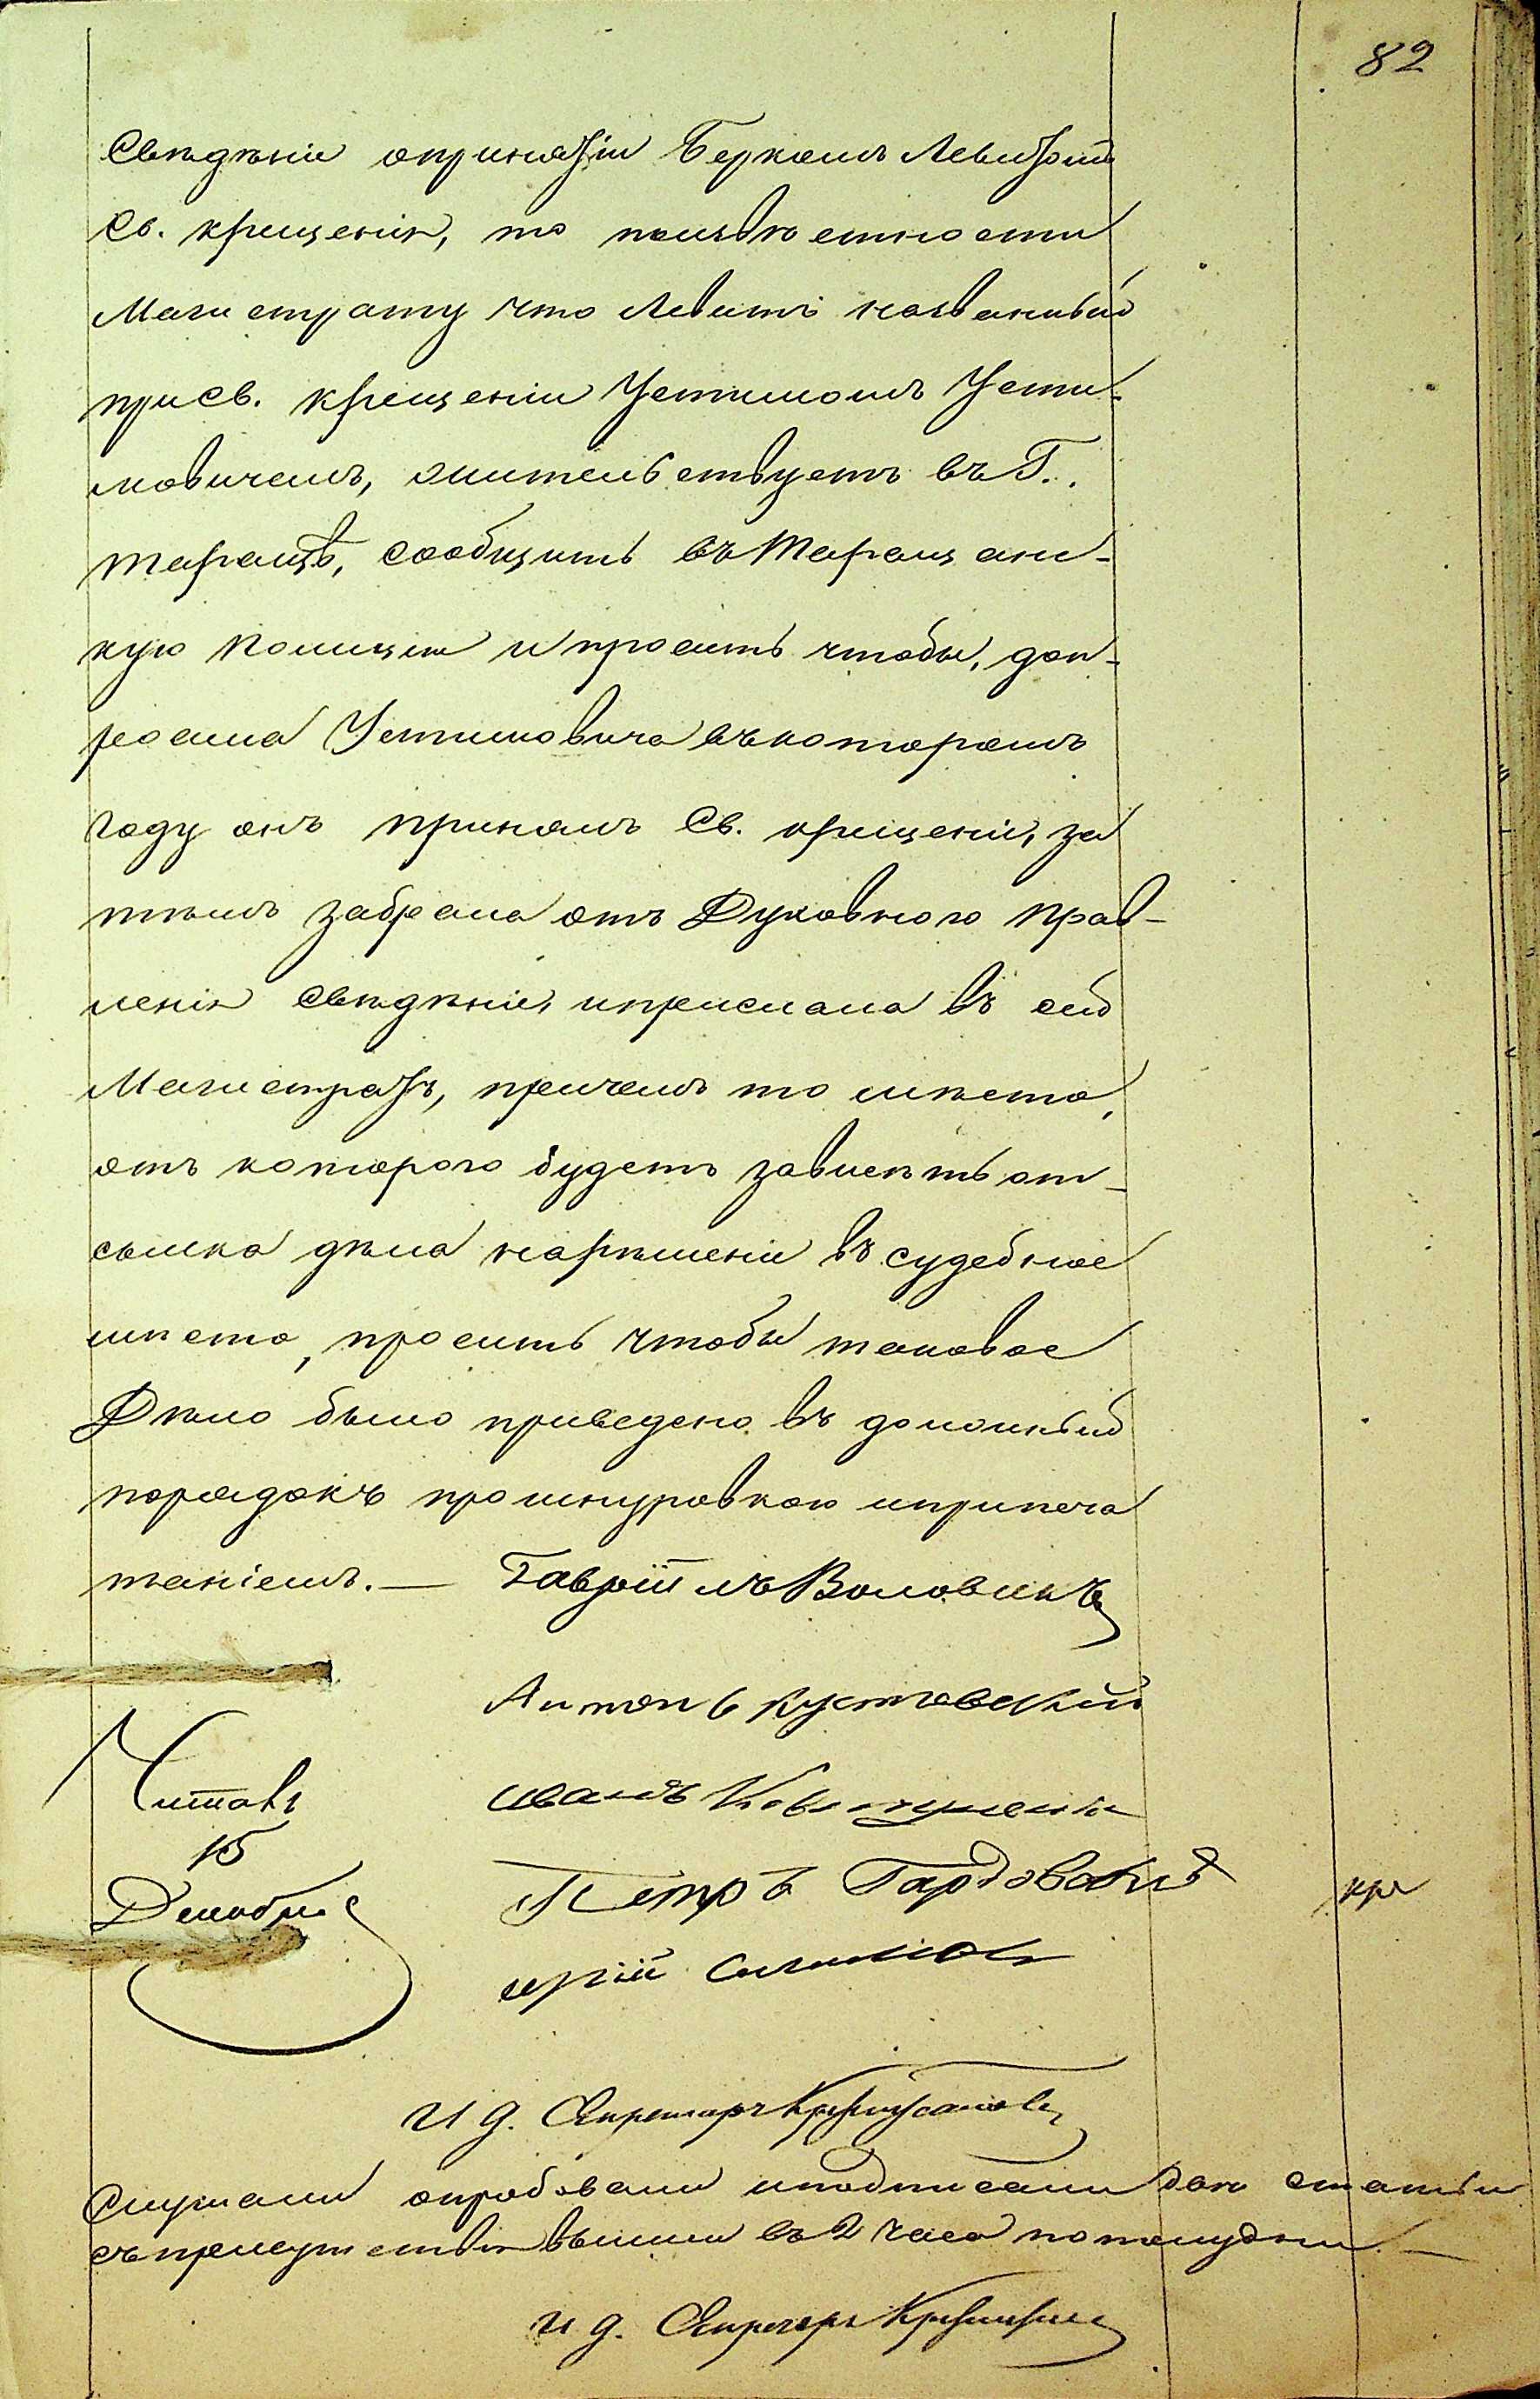 82
Свѣдѣніе опринятіи Беркомъ Левитомъ
Св. крещенія, то поизвѣстности
Магистрату что Левитъ названный
при Св. крещеніи Устимомъ Усти-
мовичемъ, жительствуетъ въ Г.
Таращѣ, сообщить въ Таращан-
кую Полицію и просить чтобы, доп-
росила Устимовича въ которомъ
году онъ принялъ Св. крещеніе, за
тѣмъ забрала отъ Духовного прав-
ленія Свѣдѣніе, иприслала въ сей
Магистратъ, причемъ то мѣсто,
отъ которого будетъ зависѣть от-
сылка дѣла нарѣшеніе въ судебное
мѣсто, просить чтобы таковое
Дѣло было приведено въ должный
порядокъ прошнуровкою иприпеча
таніемъ. — Гавріилъ Воловикъ
Антонъ Кустовскій
Читалъ
иванъ
15
Декабря
Петръ
кре
И д. Секретаря
Слушали опробовали иподписали статьи
съ присутствія вышли въ 2 часа пополудни —
И д. Секретаря